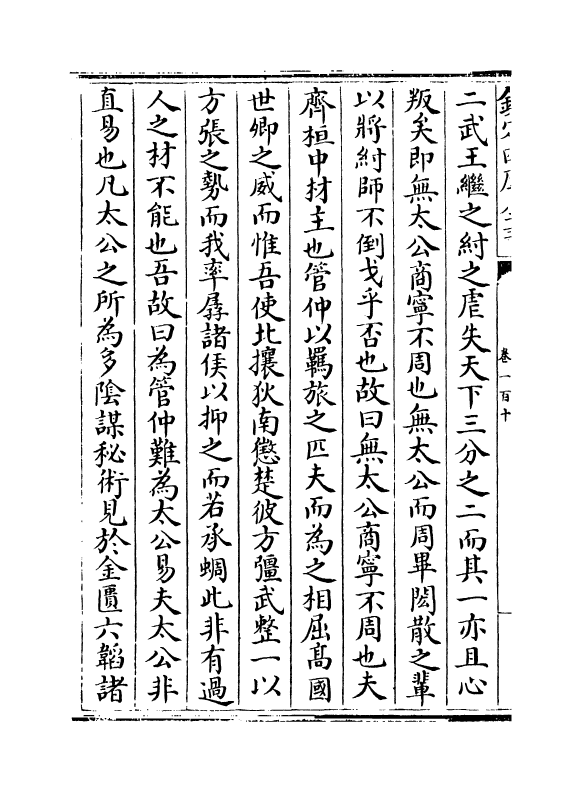 欽定四庫全書
卷一百十
二武王繼之紂之虐失天下三分之二而其一亦且心
叛矣即無太公商寧不周也無太公而周畢閎散之軰
以將紂師不倒戈乎否也故曰無太公商寧不周也夫
齊桓中材主也管仲以羈旅之匹夫而為之相屈髙國
世卿之威而惟吾使北攘狄南懲楚彼方彊武整一以
方張之勢而我率孱諸侯以抑之而若承蜩此非有過
人之材不能也吾故曰為管仲難為太公易夫太公非
直易也凡太公之所為多陰謀秘術見於金匱六韜諸